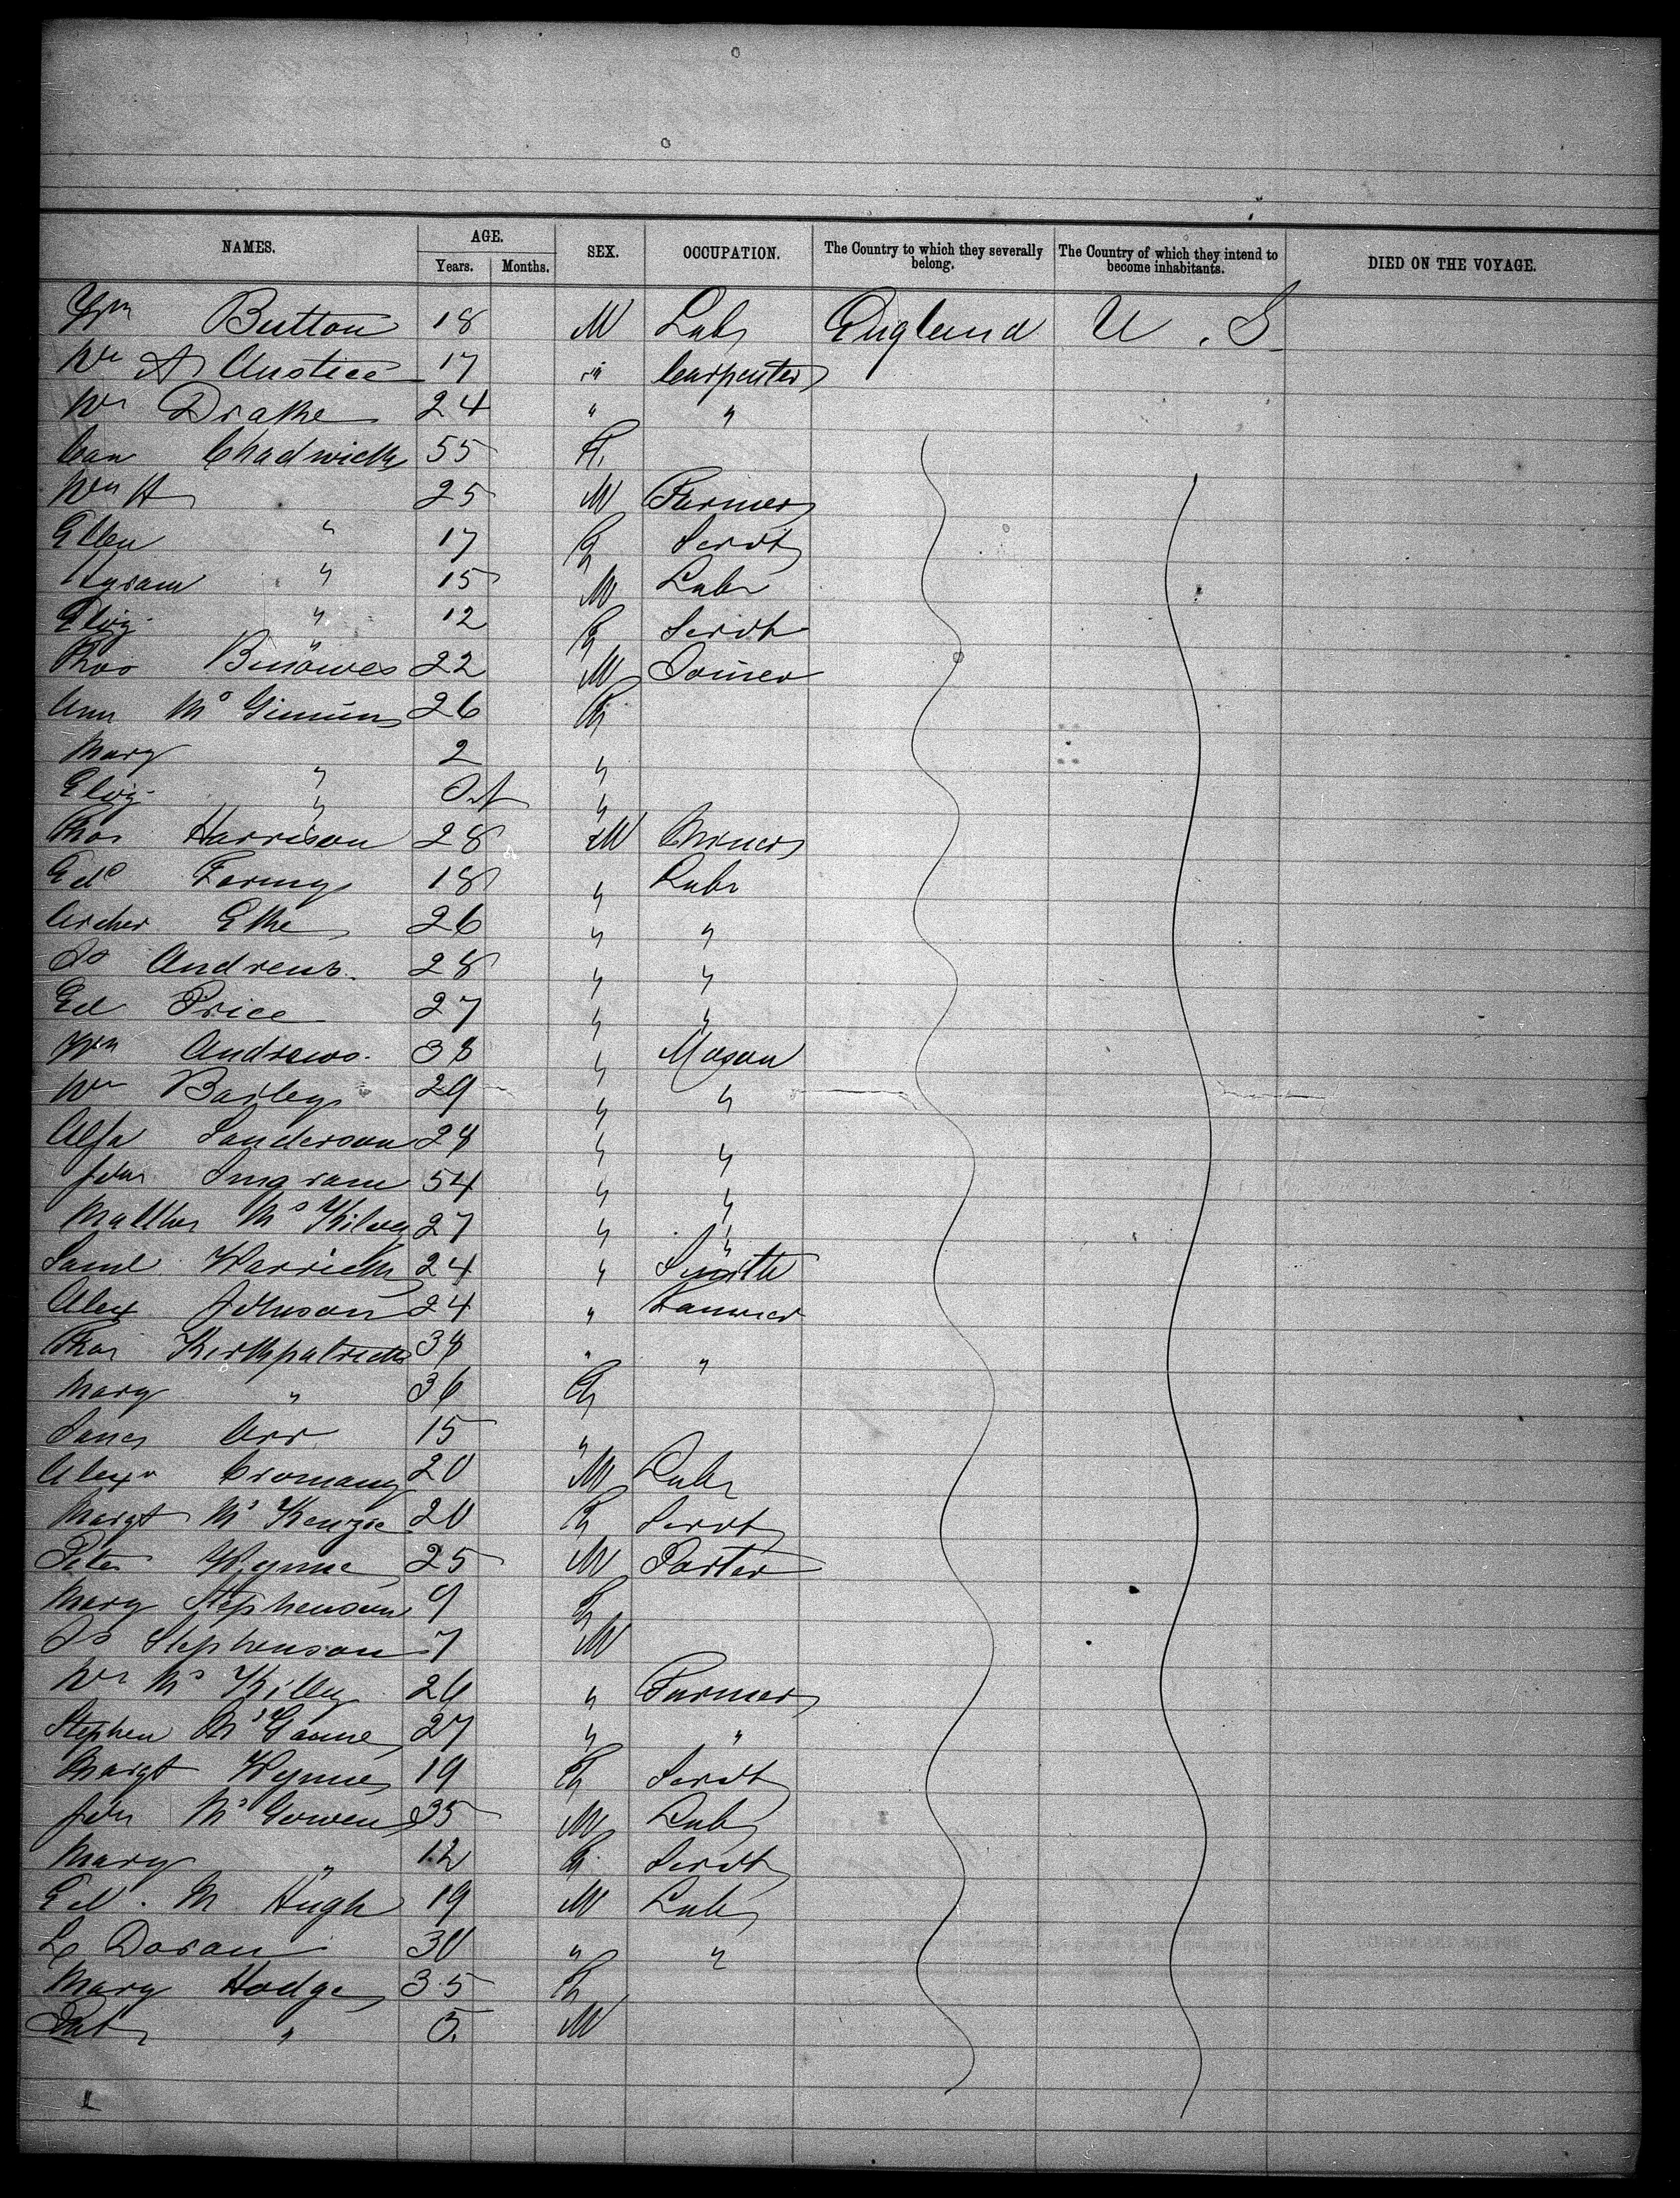 NAMES. AGE. SEX. OCCUPATION. The Country to which they severally belong. The Country of which they intend to become inhabitants. DIED ON THE VOYAGE.
Years. Months.
Wm Button 18 M Labr England U. S
Wm A Austice 17 " Carpenter
Wm Drake 24 " "
Chadwick 55 F
Wm H 25 M Farmer
Ellen " 17 F Servt
Hyram " 15 M Labr
Eliz " 12 F Servt
Thos 22 M Joiner
Ann 26 F
Mary " 2 "
Eliz " Inft "
Thos Harrison 28 M Miner
Edd 18 " Labr
Archer Eke 26 " "
Js Andrews 28 " "
Ed Price 27 " "
Wm Andrews 38 " Mason
Wm Bailey 29 " "
Alfd Sanderson 28 " "
John Ingram 54 " "
Matthw 27 " "
Saml Warrick 24 " Smith
Alex Johnson 24 "
Thos Kirkpatrick 38 " "
Mary " 36 F
Orr 15 "
Alexr 20 M Labr
Margt Mc Kenzie 20 F Servt
Peter Wynne 25 M Porter
Mary Stephenson 9 F
Js Stephenson 7 M
Wm Mc Killy 26 " Farmer
Stephen 27 " "
Margt Wynne 19 F Servt
John Mc Gowen 35 M Labr
Mary " 12 F Servt
Ed. M Hugh 19 M Labr
Doran 30 " "
Mary Hodge 35 F
Pat " 5 M